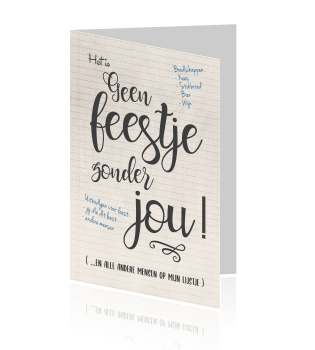 Het is
Boodschappen:
- Kaas
- Stokbrood
- Bier
- Wijn
Geen
feestje
zonder
jou!
Uitnodigen voor feest:
- jij die dit leest
- andere mensen
( ...EN ALLE ANDERE MENSEN OP MIJN LIJSTJE )